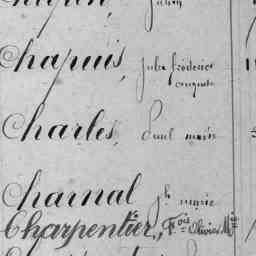 Chapuis, jules frédéric
auguste
Charles, Paul marie
Charnal Jh marie
Charpentier, Fois Olivier Mie